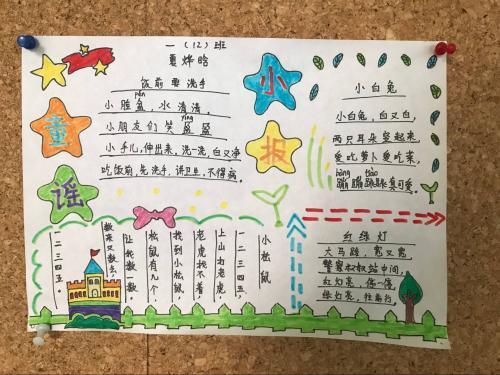 一（12）班
夏烨晗
童谣
小报
饭前要洗手
pén
小脸盆，水清清，
yíng
小朋友们笑盈盈
小手儿，伸出来，洗一洗，白又净
吃饭前，先洗手，讲卫生，不得病。
小白兔
小白兔，白又白，
两只耳朵竖起来，
爱吃萝卜爱吃菜，
bèng tiào
蹦蹦跳跳真可爱。
小松鼠
一二三四五，
上山打老虎
老虎找不着，
找到小松鼠
松鼠有几个
让我数一数，
数来又数去，
一二三四五。
红绿灯
大马路，宽又宽，
警察叔叔站中间，
红灯亮，停一停，
绿灯亮，往前行。